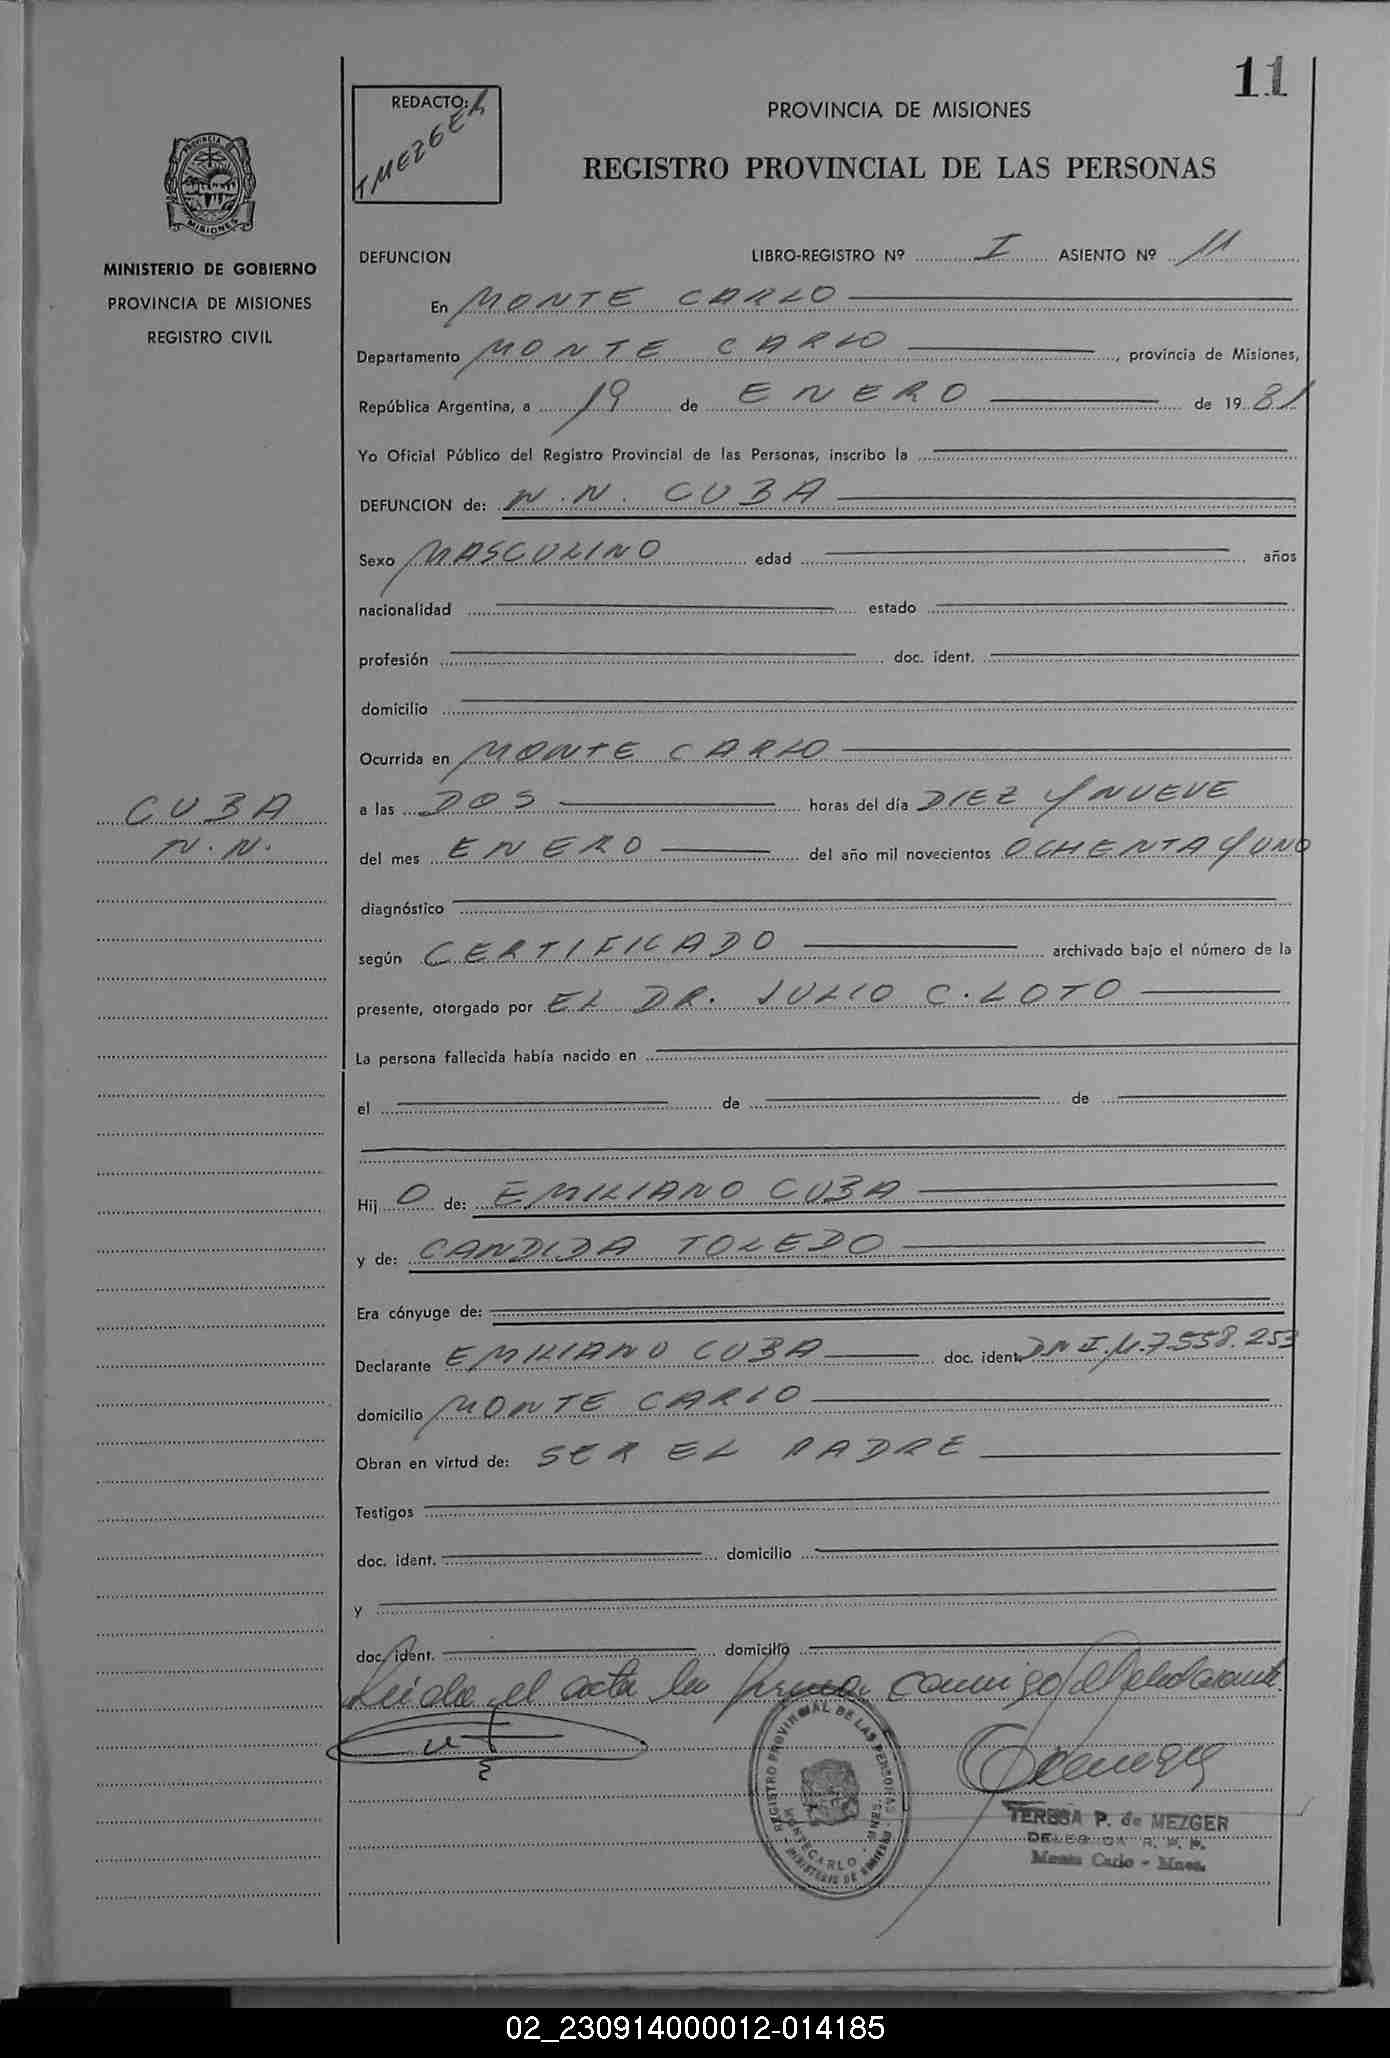 11
REDACTO:
T MEZGER
PROVINCIA DE MISIONES
REGISTRO PROVINCIAL DE LAS PERSONAS
PROVINCIA DE
MISIONES
MINISTERIO DE GOBIERNO
PROVINCIA DE MISIONES
REGISTRO CIVIL
DEFUNCION LIBRO-REGISTRO Nº I ASIENTO Nº 11
En MONTE CARLO
Departamento MONTE CARLO, provincia de Misiones,
República Argentina, a 19 de ENERO de 1981
Yo Oficial Público del Registro Provincial de las Personas, inscribo la
DEFUNCION de: N.N. CUBA
Sexo MASCULINO edad años
nacionalidad estado
profesión doc. ident.
domicilio
Ocurrida en MONTE CARLO
CUBA
N.N.
a las DOS horas del día DIEZ Y NUEVE
del mes ENERO del año mil novecientos OCHENTA Y UNO
diagnóstico
según CERTIFICADO archivado bajo el número de la
presente, otorgado por EL DR. JULIO C. LOTO
La persona fallecida había nacido en
el de de
Hij O de: EMILIANO CUBA
y de: CANDIDA TOLEDO
Era cónyuge de:
Declarante EMILIANO CUBA doc. ident. DNI.M.7.558.253
domicilio MONTE CARLO
Obran en virtud de: SER EL PADRE
Testigos
doc. ident. domicilio
y
doc. ident. domicilio
Leida el acta la firma conmigo el declarante.
REGISTRO PROVINCIAL DE LAS PERSONAS
MONTECARLO
MINISTERIO DE GOBIERNO
TERESA P. de MEZGER
DELEGADA R. P. P.
Monte Carlo - Mnes.
02_230914000012-014185